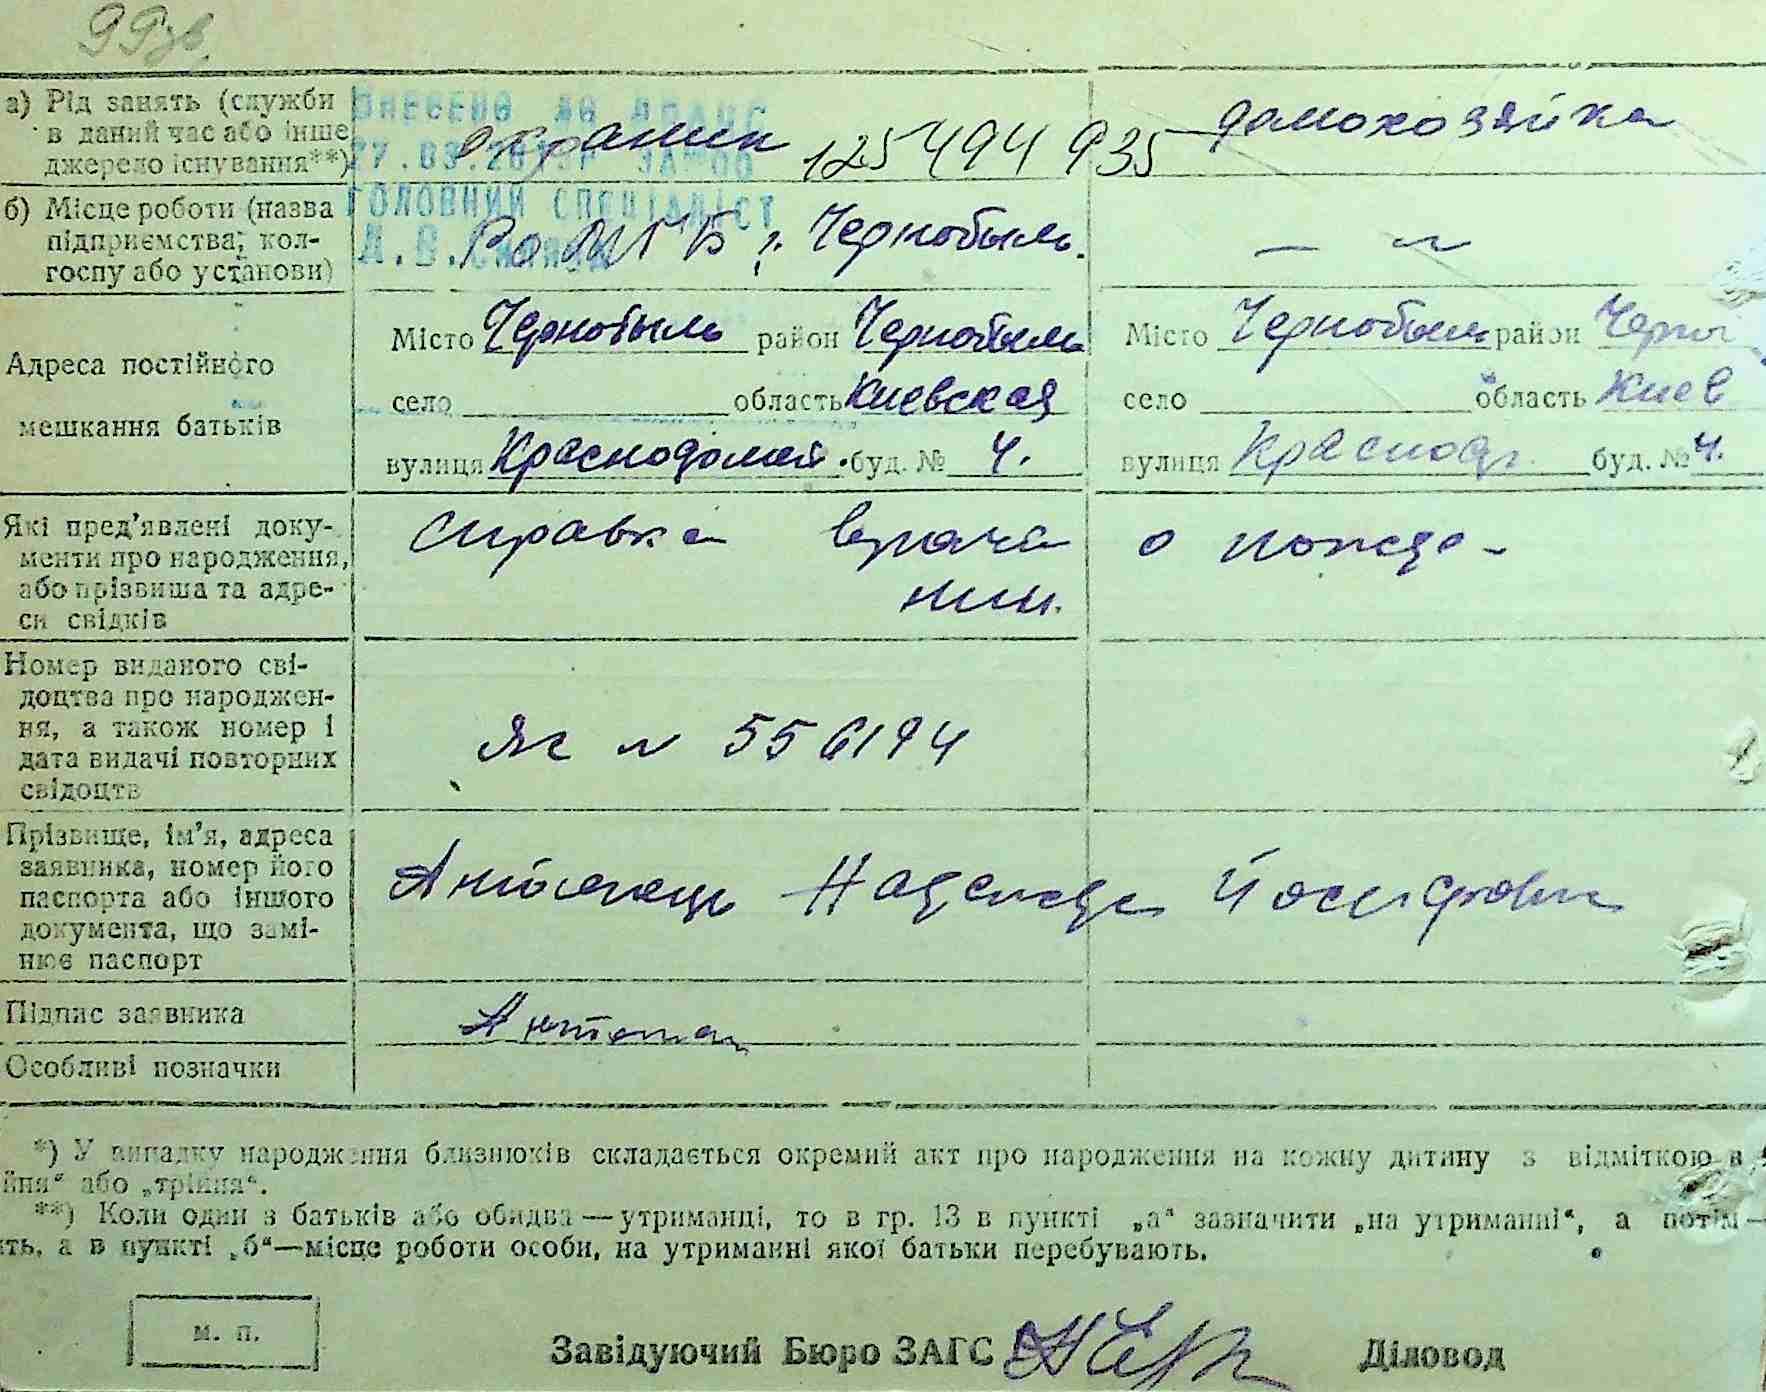 99зв.
а) Рід занять (служби
в даний час або інше
джерело існування**)
ВНЕСЕНО ДО ДРАЦС
ГОЛОВНИЙ СПЕЦІАЛІСТ
охраник
125494935
домохозяйка
б) Місце роботи (назва
підприємства, кол-
госпу або установи)
Ро МГБ г. Чернобыль.
— „
Адреса постійного
мешкання батьків
Місто Чернобыль район Чернобыль
село область Киевская
вулиця буд. № 4.
Місто Чернобыль район Черно
село область Киев
вулиця Краснод. буд. № 4.
Які пред'явлені доку-
менти про народження,
або прізвища та адре-
си свідків
справка врача о рожде-
нии.
Номер виданого сві-
доцтва про народжен-
ня, а також номер і
дата видачі повторних
свідоцтв
556194
Прізвище, ім'я, адреса
заявника, номер його
паспорта або іншого
документа, що замі-
нює паспорт
Надежда Йосифовна
Підпис заявника
Особливі позначки
*) У випадку народження близнюків складається окремий акт про народження на кожну дитину з відміткою в
йня“ або „трійня“.
**) Коли один з батьків або обидва—утриманці, то в гр. 13 в пункті „а“ зазначити „на утриманні“, а потім—
ть, а в пункті „б“—місце роботи особи, на утриманні якої батьки перебувають.
м. п.
Завідуючий Бюро ЗАГС
Діловод